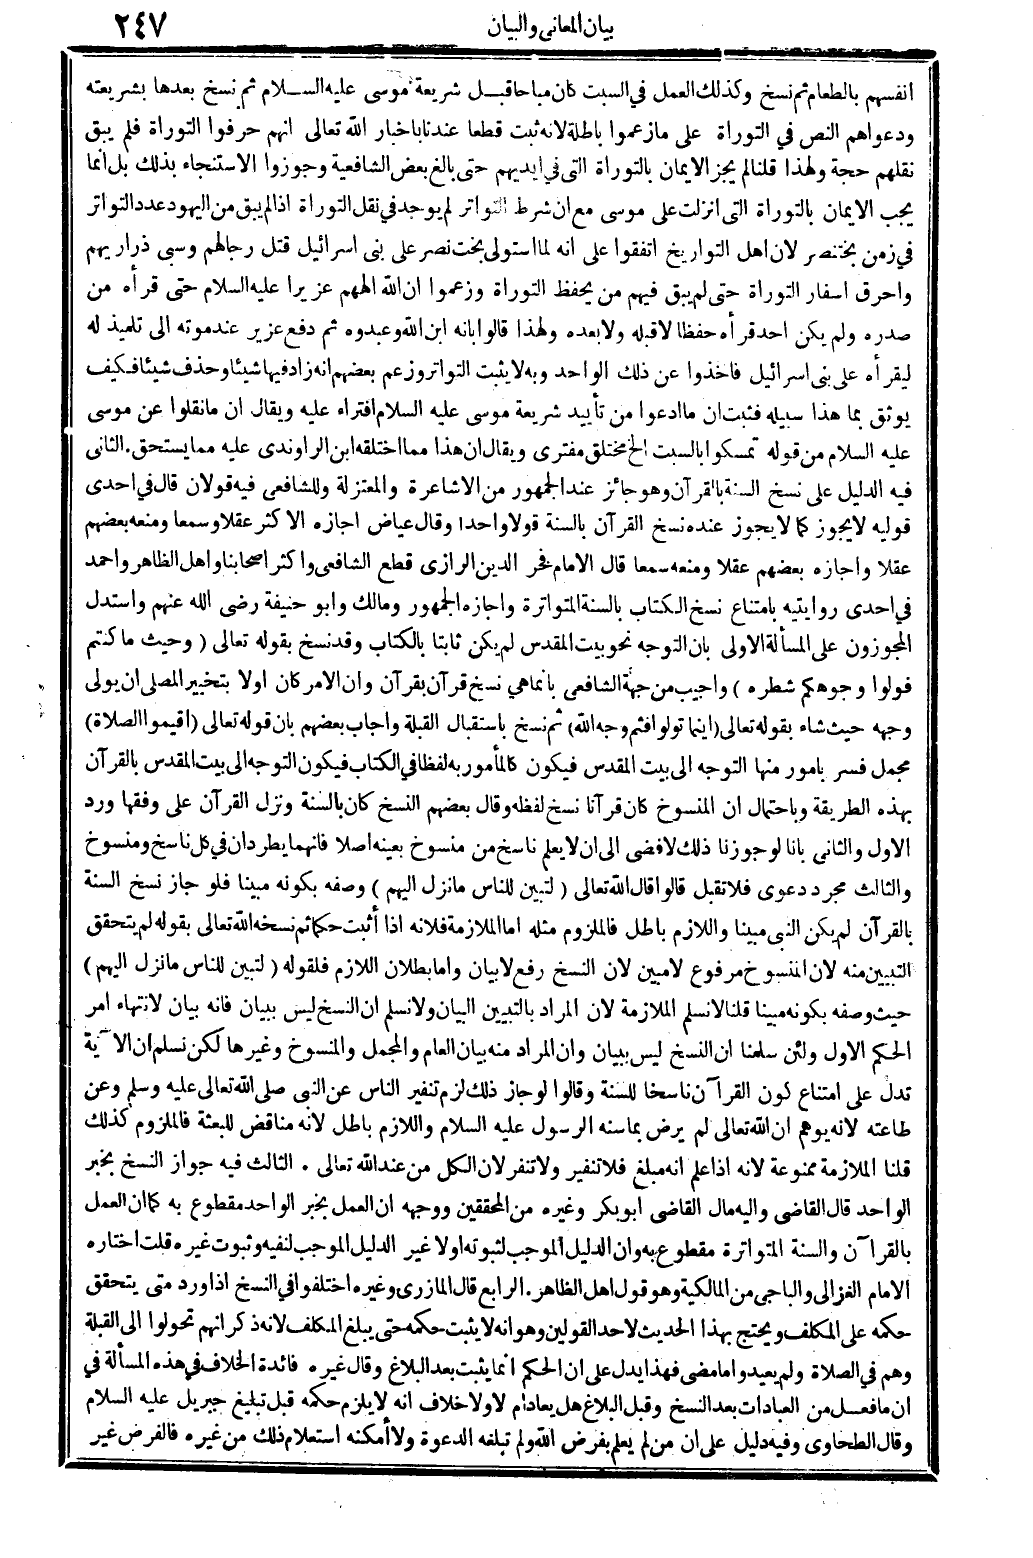 بيان المعانى والبيان ٢٤٧
انفسهم بالطعام ثم نسخ وكذلك العمل في السبت كان مباحا قبل شريعة موسى عليه السلام ثم نسخ بعدها بشريعته
ودعواهم النص في التوراة على ما زعموا باطلة لانه ثبت قطعا عندنا باخبار الله تعالى انهم حرفوا التوراة فلم يبق
نقلهم حجة ولهذا قلنا لم يجز الايمان بالتوراة التى في ايديهم حتى بالغ بعض الشافعية وجوزوا الاستنجاء بذلك بل انما
يجب الايمان بالتوراة التى انزلت على موسى مع ان شرط التواتر لم يوجد في نقل التوراة اذا لم يبق من اليهود عدد التواتر
في زمن بختنصر لان اهل التواريخ اتفقوا على انه لما استولى بخت نصر على بنى اسرائيل قتل رجالهم وسبى ذراريهم
واحرق اسفار التوراة حتى لم يبق فيهم من يحفظ التوراة وزعموا ان الله الهم عزيرا عليه السلام حتى قرأه من
صدره ولم يكن احد قرأه حفظا لا قبله ولا بعده ولهذا قالوا بانه ابن الله وعبدوه ثم دفع عزير عند موته الى تلميذ له
ليقرأه على بنى اسرائيل فاخذوا عن ذلك الواحد وبه لا يثبت التواتر وزعم بعضهم انه زاد فيها شيئا وحذف شيئا فكيف
يوثق بما هذا سبيله فثبت ان ما ادعوا من تأييد شريعة موسى عليه السلام افتراء عليه ويقال ان ما نقلوا عن موسى
عليه السلام من قوله تمسكوا بالسبت الخ مختلق مفترى ويقال ان هذا مما اختلقه ابن الراوندى عليه مما يستحق. الثانى
فيه الدليل على نسخ السنة بالقرآن وهو جائز عند الجمهور من الاشاعرة والمعتزلة وللشافعى فيه قولان قال في احدى
قوليه لا يجوز كما لا يجوز عنده نسخ القرآن بالسنة قولا واحدا وقال عياض اجازه الاكثر عقلا وسمعا ومنعه بعضهم
عقلا واجازه بعضهم عقلا ومنعه سمعا قال الامام فخر الدين الرازى قطع الشافعى واكثر اصحابنا واهل الظاهر واحمد
في احدى روايتيه بامتناع نسخ الكتاب بالسنة المتواترة واجازه الجمهور ومالك وابو حنيفة رضى الله عنهم واستدل
المجوزون على المسألة الاولى بان التوجه نحو بيت المقدس لم يكن ثابتا بالكتاب وقد نسخ بقوله تعالى ( وحيث ما كنتم
فولوا وجوهكم شطره ) واجيب من جهة الشافعى بانما هى نسخ قرآن بقرآن وان الامر كان اولا بتخيير المصلى ان يولى
وجهه حيث شاء بقوله تعالى (اينما تولوا فثم وجه الله) ثم نسخ باستقبال القبلة واجاب بعضهم بان قوله تعالى (اقيموا الصلاة)
مجمل فسر بامور منها التوجه الى بيت المقدس فيكون كالمأمور به لفظا في الكتاب فيكون التوجه الى بيت المقدس بالقرآن
بهذه الطريقة وباحتمال ان المنسوخ كان قرآنا نسخ لفظه وقال بعضهم النسخ كان بالسنة ونزل القرآن على وفقها ورد
الاول والثانى بانا لو جوزنا ذلك لافضى الى ان لا يعلم ناسخ من منسوخ بعينه اصلا فانهما يطردان في كل ناسخ ومنسوخ
والثالث مجرد دعوى فلا تقبل قالوا قال الله تعالى ( لتبين للناس ما نزل اليهم ) وصفه بكونه مبينا فلو جاز نسخ السنة
بالقرآن لم يكن النبى مبينا واللازم باطل فالملزوم مثله اما الملازمة فلانه اذا أثبت حكما ثم نسخه الله تعالى بقوله لم يتحقق
التبيين منه لان المنسوخ مرفوع لا مبين لان النسخ رفع لا بيان واما بطلان اللازم فلقوله ( لتبين للناس ما نزل اليهم )
حيث وصفه بكونه مبينا قلنا لا نسلم الملازمة لان المراد بالتبيين البيان ولا نسلم ان النسخ ليس ببيان فانه بيان لانتهاء امر
الحكم الاول ولئن سلمنا ان النسخ ليس ببيان وان المراد منه بيان العام والمجمل والمنسوخ وغيرها لكن نسلم ان الآية
تدل على امتناع كون القرآن ناسخا للسنة وقالوا لو جاز ذلك لزم تنفير الناس عن النبى صلى الله تعالى عليه وسلم وعن
طاعته لانه يوهم ان الله تعالى لم يرض بما سنه الرسول عليه السلام واللازم باطل لانه مناقض للبعثة فالملزوم كذلك
قلنا الملازمة ممنوعة لانه اذا علم انه مبلغ فلا تنفير ولا تنفر لان الكل من عند الله تعالى . الثالث فيه جواز النسخ بخبر
الواحد قال القاضى واليه مال القاضى ابو بكر وغيره من المحققين ووجهه ان العمل بخبر الواحد مقطوع به كما ان العمل
بالقرآن والسنة المتواترة مقطوع به وان الدليل الموجب لثبوته اولا غير الدليل الموجب لنفيه وثبوت غيره قلت اختاره
الامام الغزالى والباجى من المالكية وهو قول اهل الظاهر. الرابع قال المازرى وغيره اختلفوا في النسخ اذا ورد متى يتحقق
حكمه على المكلف ويحتج بهذا الحديث لاحد القولين وهو انه لا يثبت حكمه حتى يبلغ المكلف لانه ذكر انهم تحولوا الى القبلة
وهم في الصلاة ولم يعيدوا ما مضى فهذا يدل على ان الحكم انما يثبت بعد البلاغ وقال غيره فائدة الخلاف في هذه المسألة في
ان ما فعل من العبادات بعد النسخ وقبل البلاغ هل يعاد ام لا ولا خلاف انه لا يلزم حكمه قبل تبليغ جبريل عليه السلام
وقال الطحاوى وفيه دليل على ان من لم يعلم بفرض الله ولم تبلغه الدعوة ولا أمكنه استعلام ذلك من غيره فالفرض غير